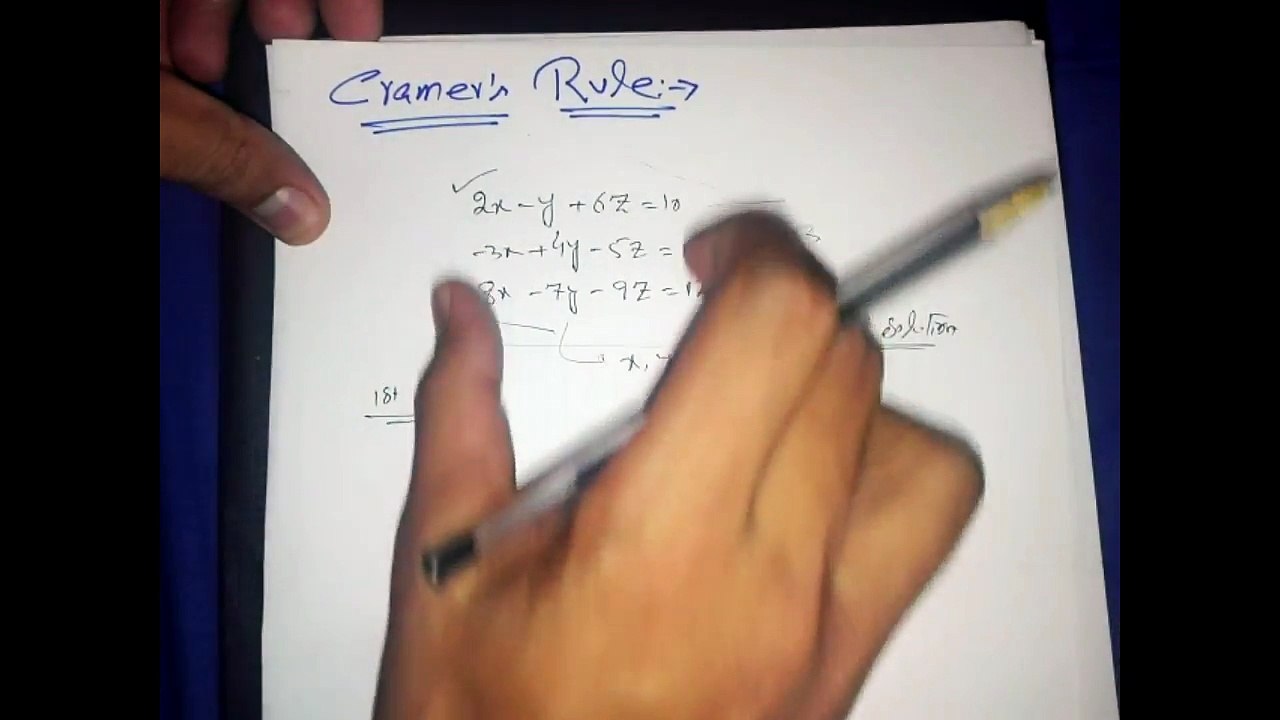 Cramer's Rule:→
2x - y + 6z = 10
-3x + 4y - 5z =
8x - 7y - 9z =
x,
Solution
1st